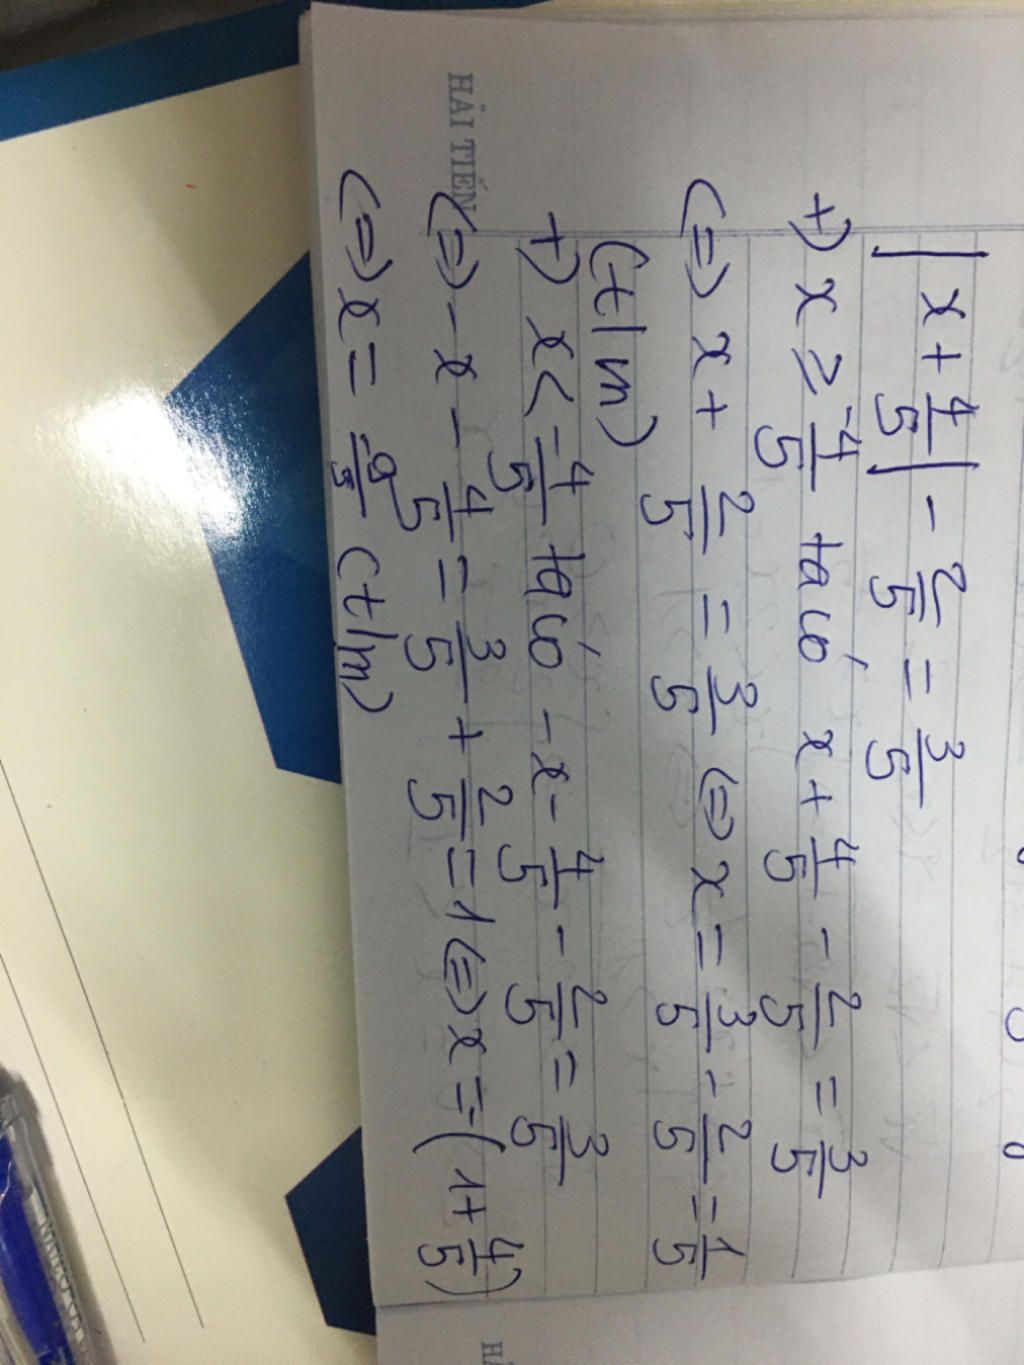 |x + 4/5| - 2/5 = 3/5
+) x ≥ -4/5 ta có x + 4/5 - 2/5 = 3/5
(=) x + 2/5 = 3/5 (=) x = 3/5 - 2/5 = 1/5
(t/m)
+) x < -4/5 ta có -x - 4/5 - 2/5 = 3/5
(=) -x - 4/5 = 3/5 + 2/5 = 1 (=) x = -(1 + 4/5)
(=) x = -9/5 (t/m)
HẢI TIẾN